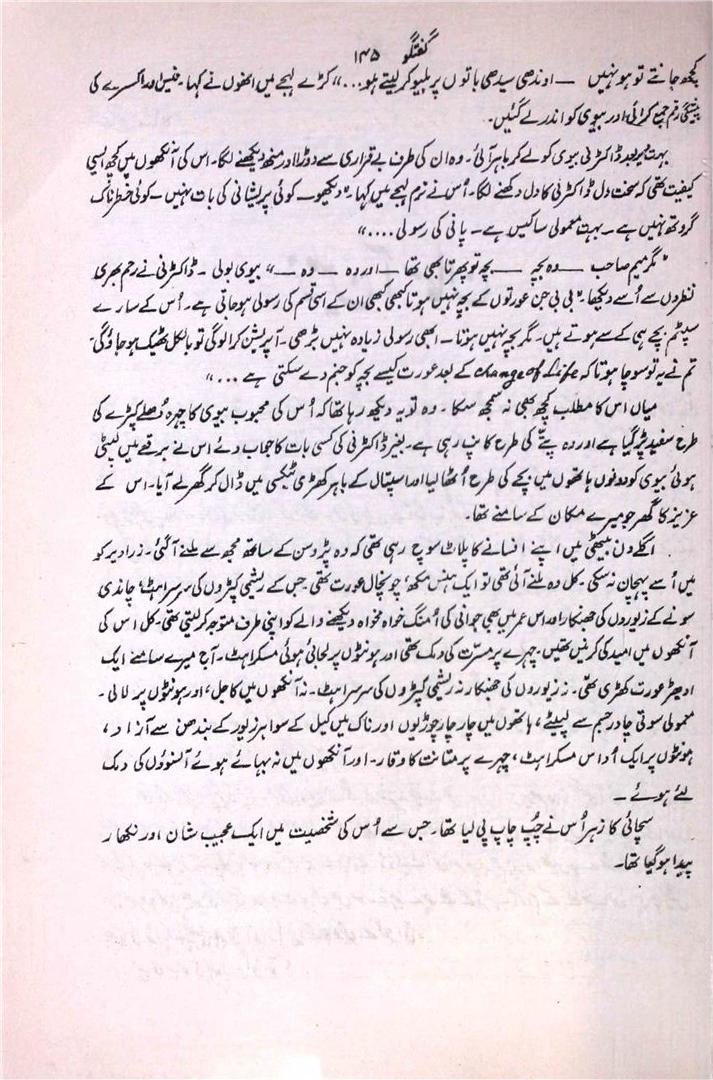 گفتگو ۱۴۵
کچھ جانتے تو ہو نہیں — اوندھی سیدھی باتوں پر بلیو کر لیتے ہو...“ کڑے لہجے میں انھوں نے کہا۔ فیس اور اکسرے کی
پیشگی رقم جمع کرائی اور بیوی کو اندر لے گئیں۔
بہت دیر بعد ڈاکٹرنی بیوی کو لے کر باہر آئی۔ وہ ان کی طرف بے قراری سے دوڑا اور منھ دیکھنے لگا۔ اس کی آنکھوں میں کچھ ایسی
کیفیت تھی کہ سخت دل ڈاکٹرنی کا دل دکھنے لگا۔ اُس نے نرم لہجے میں کہا۔ ”دیکھو — کوئی پریشانی کی بات نہیں۔ کوئی خطرناک
گروتھ نہیں ہے۔ بہت معمولی سا کیس ہے۔ پانی کی رسولی ....“
”مگر میم صاحب — وہ بچہ — بچہ تو پھرتا بھی تھا — اور وہ — وہ —“ بیوی بولی۔ ڈاکٹرنی نے رحم بھری
نظروں سے اُسے دیکھا۔ ”بی بی جن عورتوں کے بچہ نہیں ہوتا کبھی کبھی ان کے اسی قسم کی رسولی ہو جاتی ہے۔ اُس کے سارے
سمپٹم بچے ہی کے سے ہوتے ہیں۔ مگر بچہ نہیں ہوتا۔ ابھی رسولی زیادہ نہیں بڑھی۔ آپریشن کرا لوگی تو بالکل ٹھیک ہو جاؤگی۔
تم نے یہ تو سوچا ہوتا کہ Change of Life کے بعد عورت کیسے بچہ کو جنم دے سکتی ہے ...“
میاں اس کا مطلب کچھ بھی نہ سمجھ سکا۔ وہ تو یہ دیکھ رہا تھا کہ اُس کی محبوب بیوی کا چہرہ دُھلے کپڑے کی
طرح سفید پڑ گیا ہے اور وہ پتّے کی طرح کانپ رہی ہے۔ بغیر ڈاکٹرنی کی کسی بات کا جواب دئے اس نے برقعے میں لپٹی
ہوئی بیوی کو دونوں ہاتھوں میں بچے کی طرح اُٹھا لیا اور اسپتال کے باہر کھڑی ٹیکسی میں ڈال کر گھر لے آیا۔ اس کے
عزیز کا گھر جو میرے مکان کے سامنے تھا۔
اگلے دن میں بیٹھی اپنے افسانے کا پلاٹ سوچ رہی تھی کہ وہ پڑوسن کے ساتھ مجھ سے ملنے آ گئی۔ زرا دیر کو
میں اُسے پہچان نہ سکی۔ کل وہ ملنے آئی تھی تو ایک ہنس مکھ، چونچال عورت تھی۔ جس کے ریشمی کپڑوں کی سرسراہٹ، چاندی
سونے کے زیوروں کی جھنکار اور اس عمر میں بھی جوانی کی اُمنگ خواہ مخواہ دیکھنے والے کو اپنی طرف متوجہ کر لیتی تھی۔ کل اس کی
آنکھوں میں امید کی کرنیں تھیں۔ چہرے پر مسرّت کی دمک تھی اور ہونٹوں پر لجائی ہوئی مسکراہٹ۔ آج میرے سامنے ایک
ادھیڑ عورت کھڑی تھی۔ نہ زیوروں کی جھنکار نہ ریشمی کپڑوں کی سرسراہٹ۔ نہ آنکھوں میں کاجل، اور ہونٹوں پر لالی۔
معمولی سوتی چادر جسم سے لپیٹے، ہاتھوں میں چار چار چوڑیوں اور ناک میں کیل کے سوا ہر زیور کے بندھن سے آزاد،
ہونٹوں پر ایک اُداس مسکراہٹ، چہرے پر متانت کا وقار۔ اور آنکھوں میں نہ بہائے ہوئے آنسوؤں کی دمک
لئے ہوئے۔
سچائی کا زہر اُس نے چُپ چاپ پی لیا تھا۔ جس سے اُس کی شخصیت میں ایک عجیب شان اور نکھار
پیدا ہو گیا تھا۔